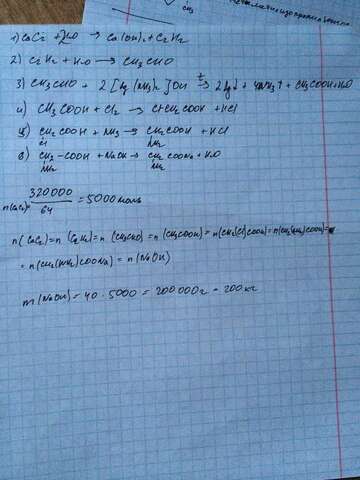 CH₃
1) CaC₂ + 2H₂O → Ca(OH)₂ + C₂H₂
2) C₂H₂ + H₂O → CH₃CHO
3) CH₃CHO + 2[Ag(NH₃)₂]OH →t 2Ag↓ + 4NH₃↑ + CH₃COOH + H₂O
4) CH₃COOH + Cl₂ → ClCH₂COOH + HCl
5) CH₂COOH + NH₃ → CH₂COOH + HCl
Cl NH₂
6) CH₂-COOH + NaOH → CH₂COONa + H₂O
NH₂ NH₂
n(CaC₂) = 320000/64 = 5000 моль
n(CaC₂) = n(C₂H₂) = n(CH₃CHO) = n(CH₃COOH) = n(CH₂(Cl)COOH) = n(CH₂(NH₂)COOH) =
= n(CH₂(NH₂)COONa) = n(NaOH)
m(NaOH) = 40 · 5000 = 200 000 г = 200 кг